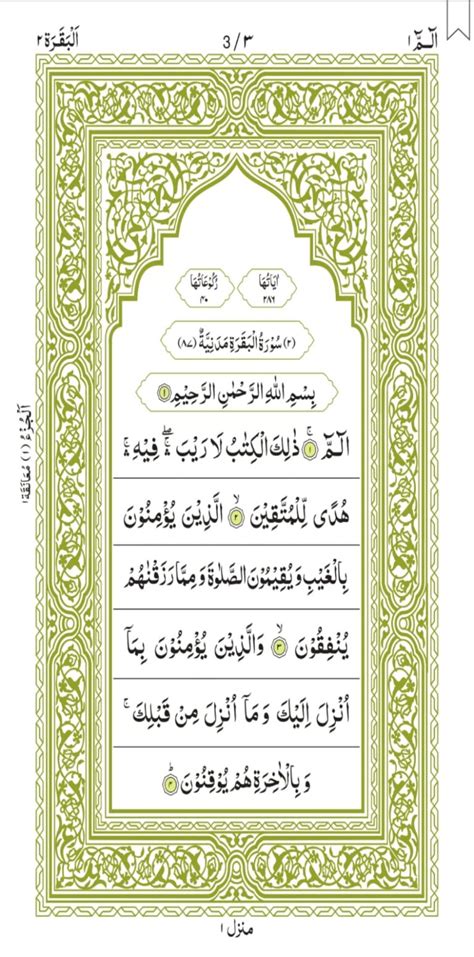 الٓمّٓ ١
3/٣
اَلْبَقَرَة ٢
اٰيَاتُهَا ٢٨٦
رُكُوْعَاتُهَا ٤٠
(٢) سُوْرَةُ الْبَقَرَةِ مَدَنِيَّةٌ (٨٧)
بِسْمِ اللّٰهِ الرَّحْمٰنِ الرَّحِيْمِ ١
الٓمّٓ ۚ ١ ذٰلِكَ الْكِتٰبُ لَا رَيْبَ ۛۖ فِيْهِ ۛۚ
هُدًى لِّلْمُتَّقِيْنَ ۙ ٢ الَّذِيْنَ يُؤْمِنُوْنَ
بِالْغَيْبِ وَيُقِيْمُوْنَ الصَّلٰوةَ وَمِمَّا رَزَقْنٰهُمْ
يُنْفِقُوْنَ ۙ ٣ وَالَّذِيْنَ يُؤْمِنُوْنَ بِمَآ
اُنْزِلَ اِلَيْكَ وَمَآ اُنْزِلَ مِنْ قَبْلِكَ ۚ
وَبِالْاٰخِرَةِ هُمْ يُوْقِنُوْنَ ؕ ٤
اَلْجُزْءُ (١) مُعَانَقَة ١
منزل ١